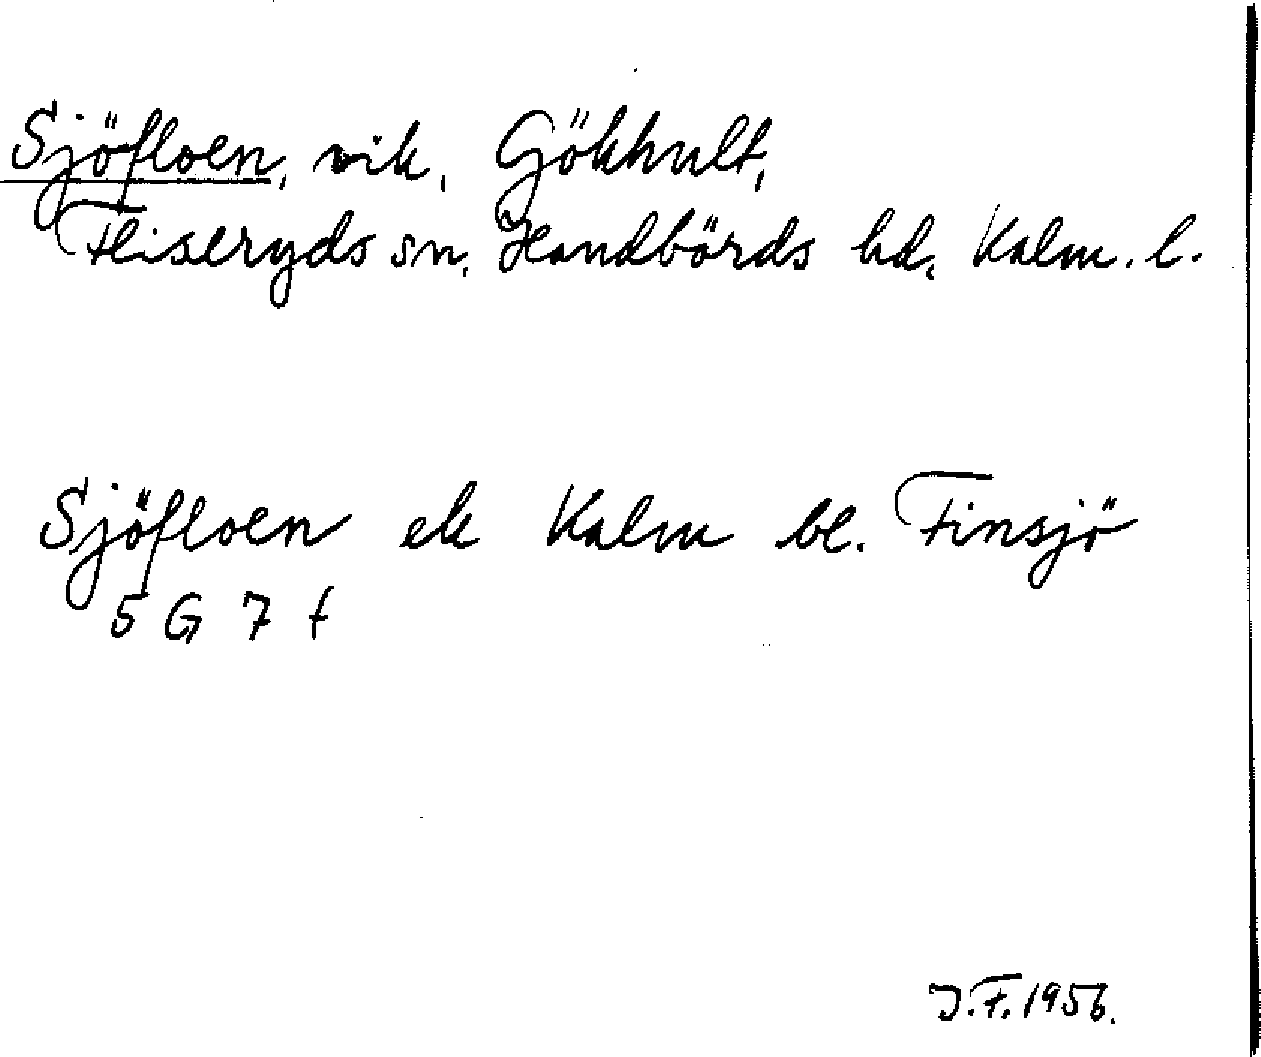 Sjöfloen, vik, Gökhult,
Fliseryds sn. Handbörds hd. Kalm. l.
Sjöfloen ek Kalm bl. Finsjö
5 G 7 f
J.F. 1956.